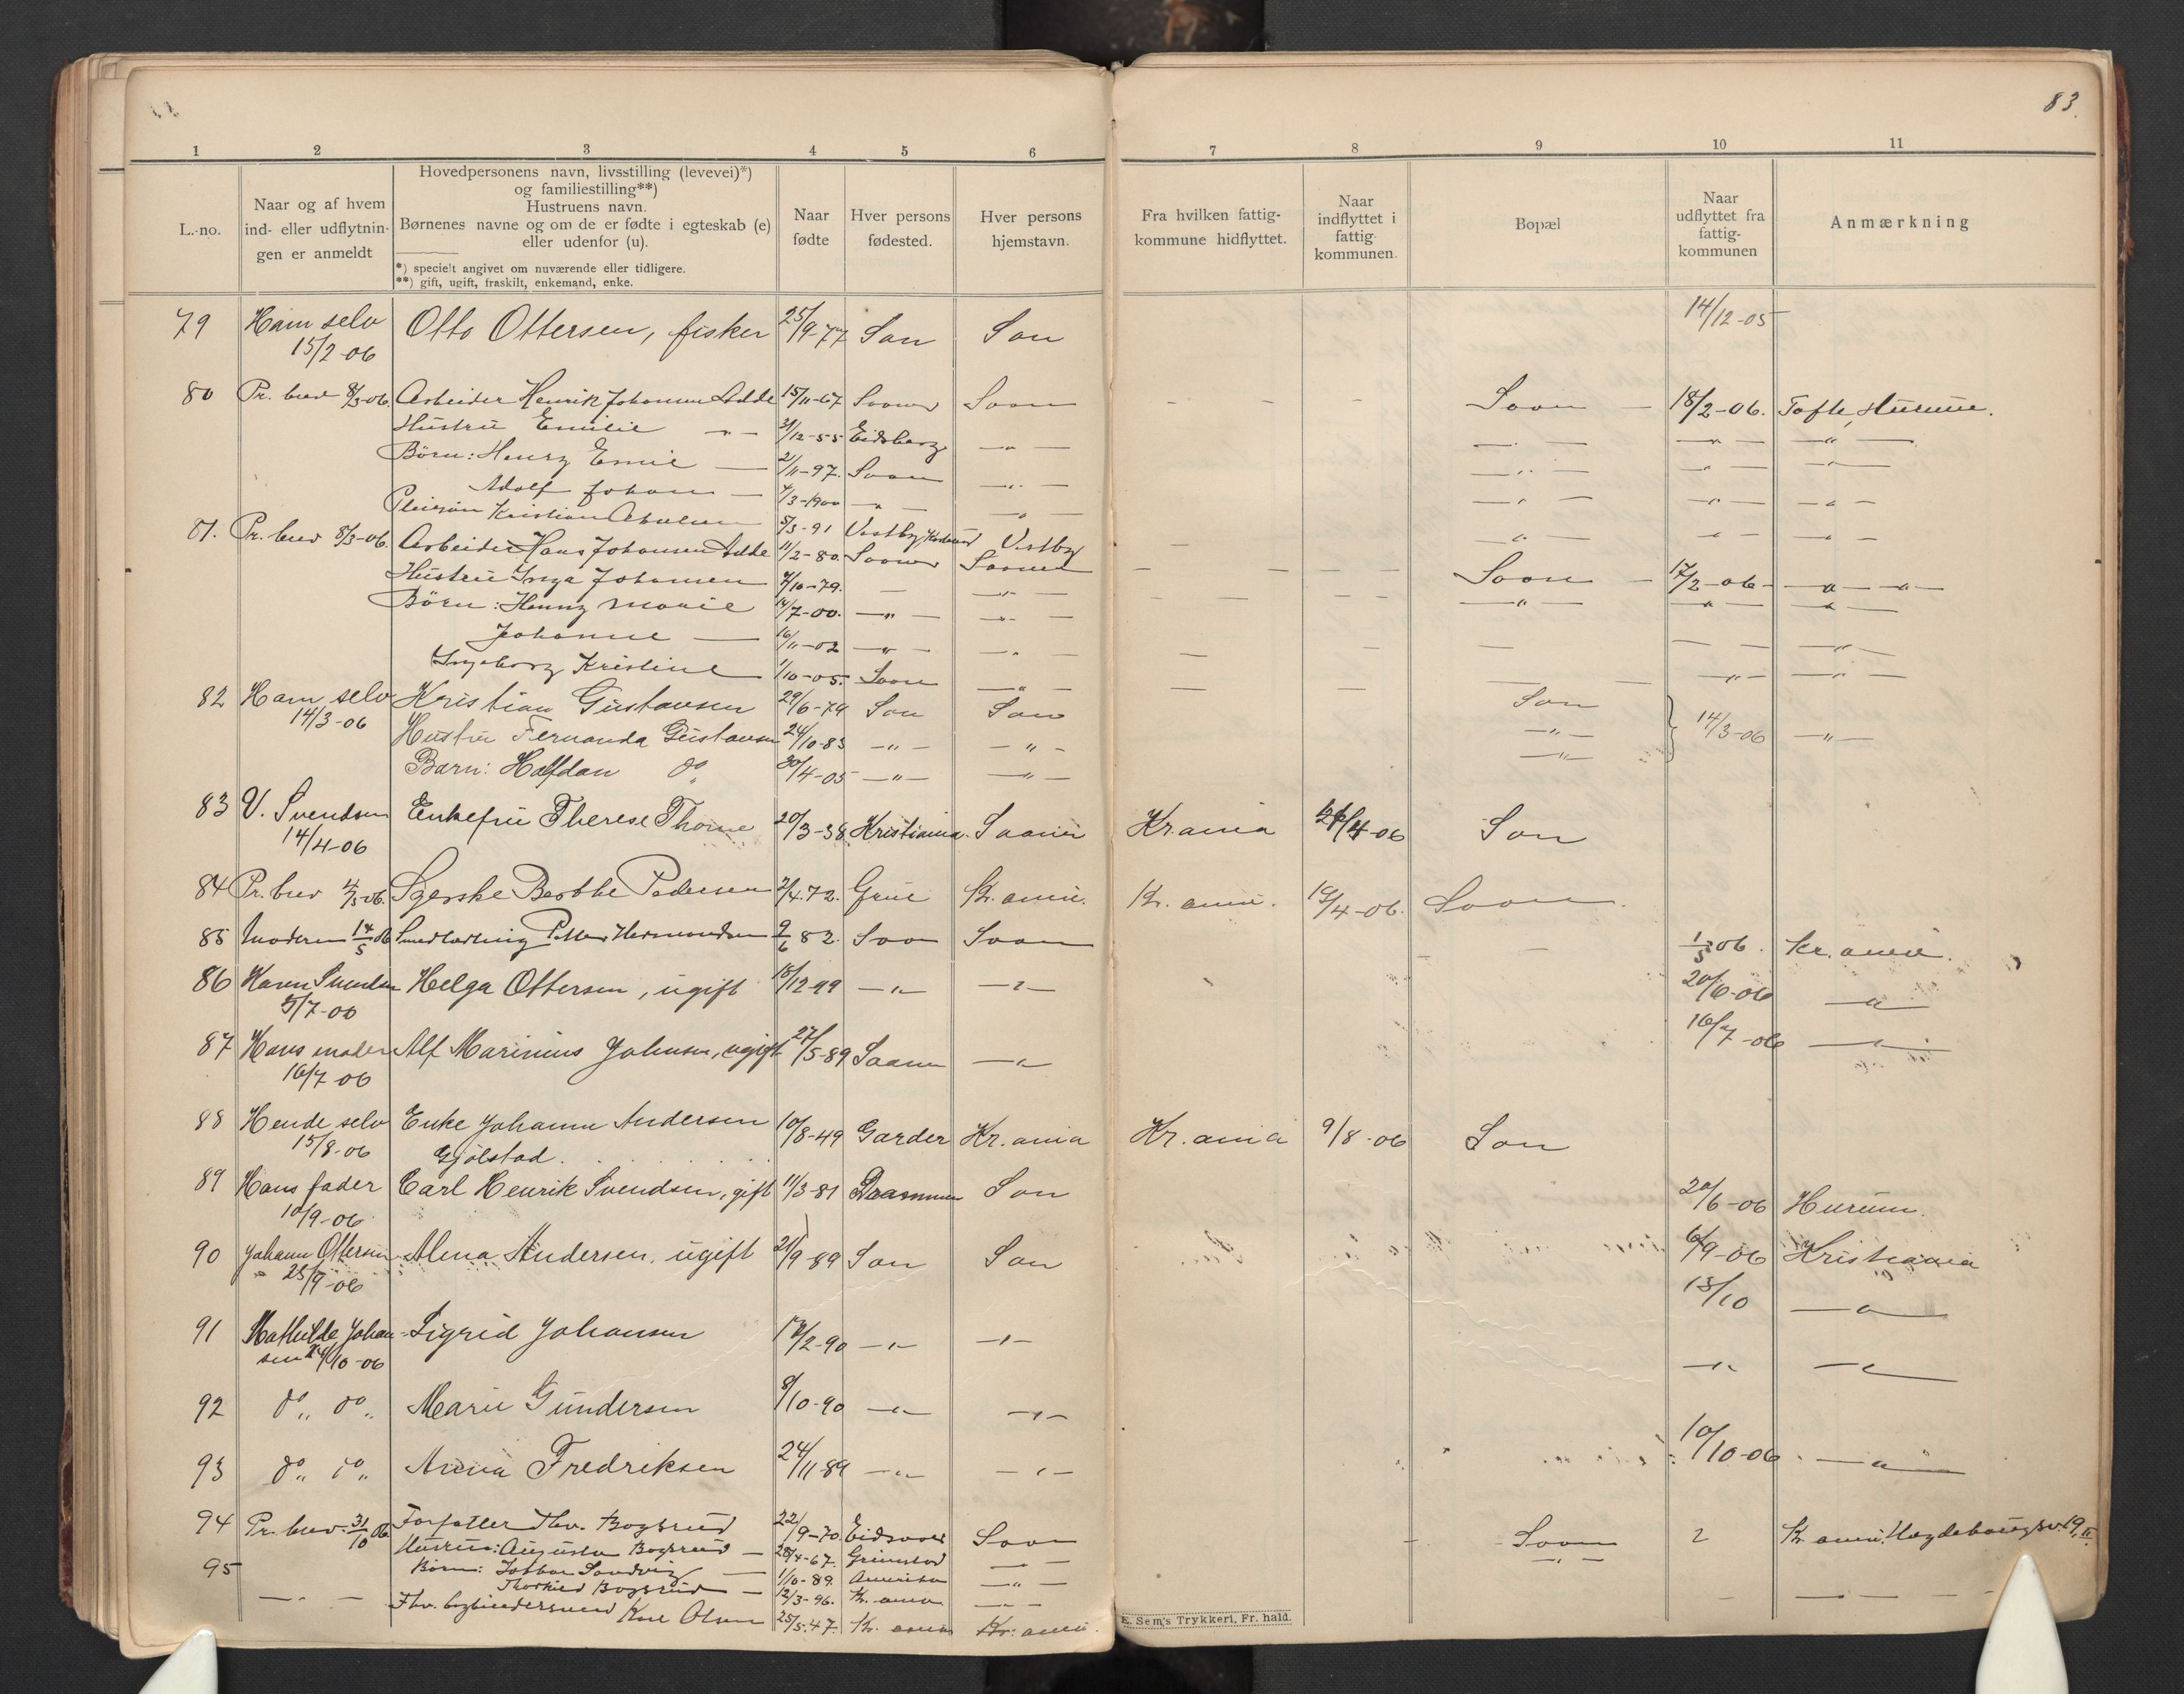 83.
1 2 3 4 5 6 7 8 9 10 11
L.-no.
Naar og af hvem
ind- eller udflytnin-
gen er anmeldt
Hovedpersonens navn, livsstilling (levevei)*)
og familiestilling**)
Hustruens navn.
Børnenes navne og om de er fødte i egteskab (e)
eller udenfor (u).
*) specielt angivet om nuværende eller tidligere.
**) gift, ugift, fraskilt, enkemand, enke.
Naar
fødte
Hver persons
fødested.
Hver persons
hjemstavn.
Fra hvilken fattig-
kommune hidflyttet.
Naar
indflyttet i
fattig
kommunen.
Bopæl
Naar
udflyttet fra
fattig-
kommunen
Anmærkning
79 Ham selv Otto Ottersen, fisker 25/9-77 Son Son 14/12-05
15/2-06
80 Pr. brev 8/3-06. Arbeider Henrik Johansen 15/11-67 Sooner Soon — — — Soon — 18/2-06. Tofte, Hurum.
Hustru Emilie —„— /12-55 Eidsberg —„— —„— —„— —„—
Børn: Henry Emil — 2/11-97. Soon —„— —„— —„— —„—
Adolf Johan — 7/3-1900 —„— —„— —„— —„— —„—
Pleiesøn Kristian 5/3-91 Vestby Vestby —„— —„— —„—
81. Pr. brev 8/3-06. Arbeider Hans Johansen 11/2-80. Sooner Sooner — — — Soon — 17/2-06 —„—„—
Hustru Inga Johansen /10-79. — —„— — — — —„— —„— —„—
Børn: Henny Marie 14/7-00. —„— —„—
Johanne — 16/11-02 —„— —„— — — — —„—
Ingeborg Kristine 1/10-05. Soon —„— — — — —„— —„—
82 Ham selv Kristian Gustavsen 29/6-79 Son Son Son
14/3-06 Hustru Fernanda Gustavsen 24/10-83 —„— —„— —„— 14/3-06 —„—
Barn: Halfdan do 30/4-05 —„— —„— —„—
83 V. Svendsen Enkefru Therese Thorne 20/3-38 Kristiania. Sooner Kr.ania /4-06 Son
14/4-06
84 Pr. brev /5-06. Syerske Berthe Pedersen 2/4.72. Grue Kr. ania. Kr. ania. 19/4-06. Soon.
85 Moderen 14/5 06 Smedlærling Petter Hermansen 9/6 82. Soon Soon — 1/5 06. Kr. ania.
86 Karen Svendsen Helga Ottersen, ugift 18/12-99 —„— —„— 20/6-06 —„—
5/7-06
87 Hans moder Alf Marinius Johnsen, ugift 27/5-89 Sooner —„— 16/7-06 —„—
16/7-06
88 Hende selv Enke Johanne Andersen 10/8-49 Garder Kr. ania Kr. ania 9/8-06 Son
15/8-06 Gjølstad.
89 Hans fader Carl Henrik Svendsen, gift 11/3-81 Son 20/6-06 Hurum.
10/9-06
90 Johann Ottersen Alma Andersen, ugift 21/9-89 Son Son 6/9-06 Kristiania
25/9-06
91 Mathilde Johan- Sigrid Johansen /2-90 —„— —„— 13/10 —„—
sen /10-06
92 do„ do„ Marie Gundersen 8/10-90 —„— —„— —„— —„—
93 do„ do„ Anna Fredriksen 24/11-89 —„— —„— 10/10-06 —„—
94 Pr. brev. 31/10 06 Forfatter Thv. Bogsrud 22/9-70 Eidsvold Soon — Soon Kr. ania,
Hustru: Augusta Bogsrud — 28/4-67. Grimstad —„— —„—
95 Børn: Sandvig — 1/10-89. Amerika —„—
—„— Bogsrud — 12/3-96. Kr. ania —„— —„—
Karl Olsen 25/5-47. Kr. ania Kr. ania.
E. Sem's Trykkeri, Fr. hald.